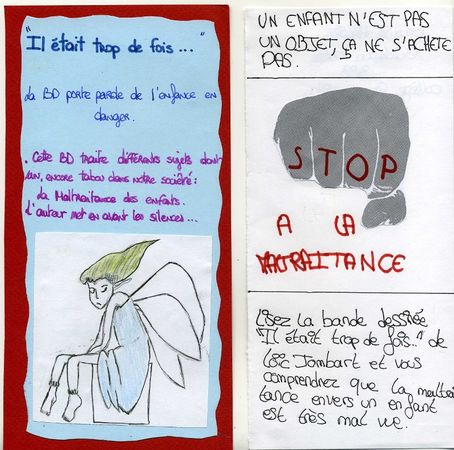 "Il était trop de fois..."
La BD porte parole de l'enfance en
danger.
. Cette BD traite différents sujets dont
un, encore tabou dans notre société:
la Maltraitance des enfants.
L'auteur met en avant les silences...
UN ENFANT N'EST PAS
UN OBJET, ÇA NE S'ACHÈTE
PAS.
STOP
A LA
MALTRAITANCE
Lisez la bande dessinée
"Il était trop de fois.." de
Loïc Jombart et vous
comprendrez que la maltrai
tance envers un enfant
est très mal vue.